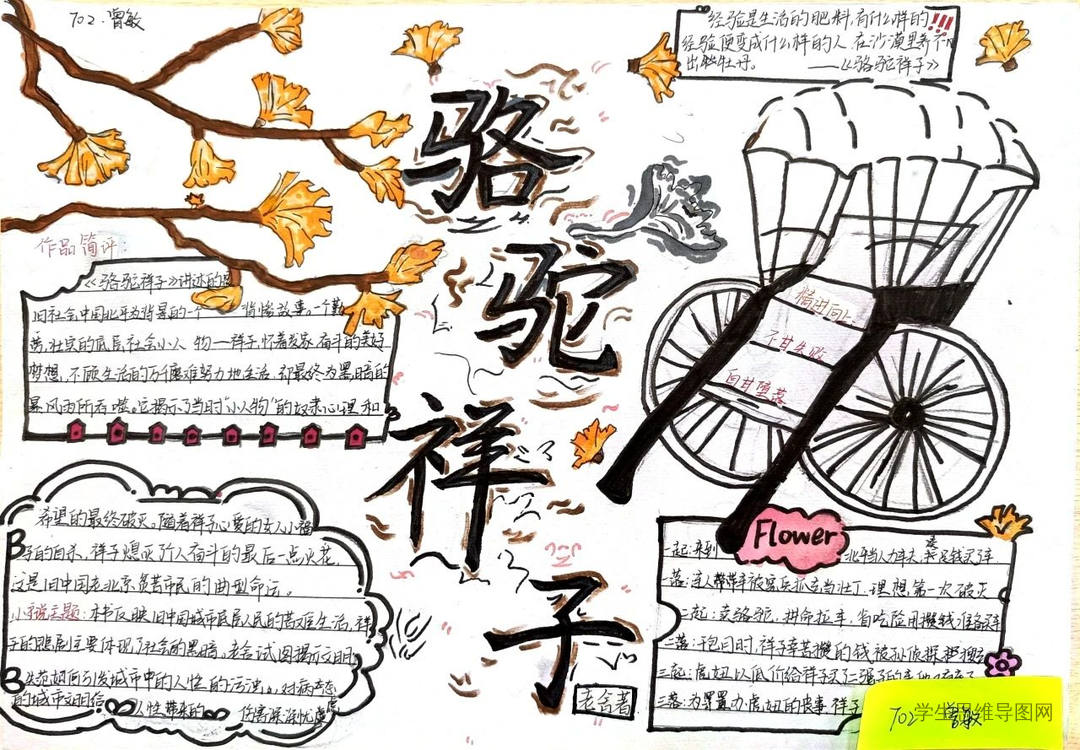 702.曾敏
经验是生活的肥料,有什么样的!!!
经验便变成什么样的人,在沙漠里养不
出牡丹。 ——《骆驼祥子》
骆
驼
祥
子
老舍著
作品简评:
《骆驼祥子》讲述的是
旧社会中国北平为背景的一个 悲惨故事。一个勤
劳,壮实的底层社会小人 物一祥子,怀着发家,奋斗的美好
梦想,不顾生活的万千磨难努力地生活,却最终为黑暗的
暴风雨所吞噬。它揭示了当时“小人物”的奴隶心理和
精进向上
不甘失败
自甘堕落
希望的最终破灭。随着祥子心爱的女人小福
子的自杀,祥子熄灭了个人奋斗的最后一点火花,
这是旧中国老北京贫苦市民的典型命运。
小说主题:本书反映旧中国城市底层人民的苦难生活,祥
子的悲剧主要体现了社会的黑暗,老舍试图揭示文明
失范如何引发城市中的人性的污染。对病态
的城市文明给 人性带来的 伤害深深忧虑
Flower
一起:来到 北平当人力车夫, 买车
一落:连人带车被宪兵抓去当壮丁,理想第一次破灭
二起:卖骆驼,拼命拉车,省吃俭用攒钱准备买车
二落:干包月时,祥子辛苦攒的钱被孙侦探
三起:虎妞以低价给祥子买了二强子的车
三落:为置办虎妞的丧事,祥子
702 曾敏
学生思维导图网